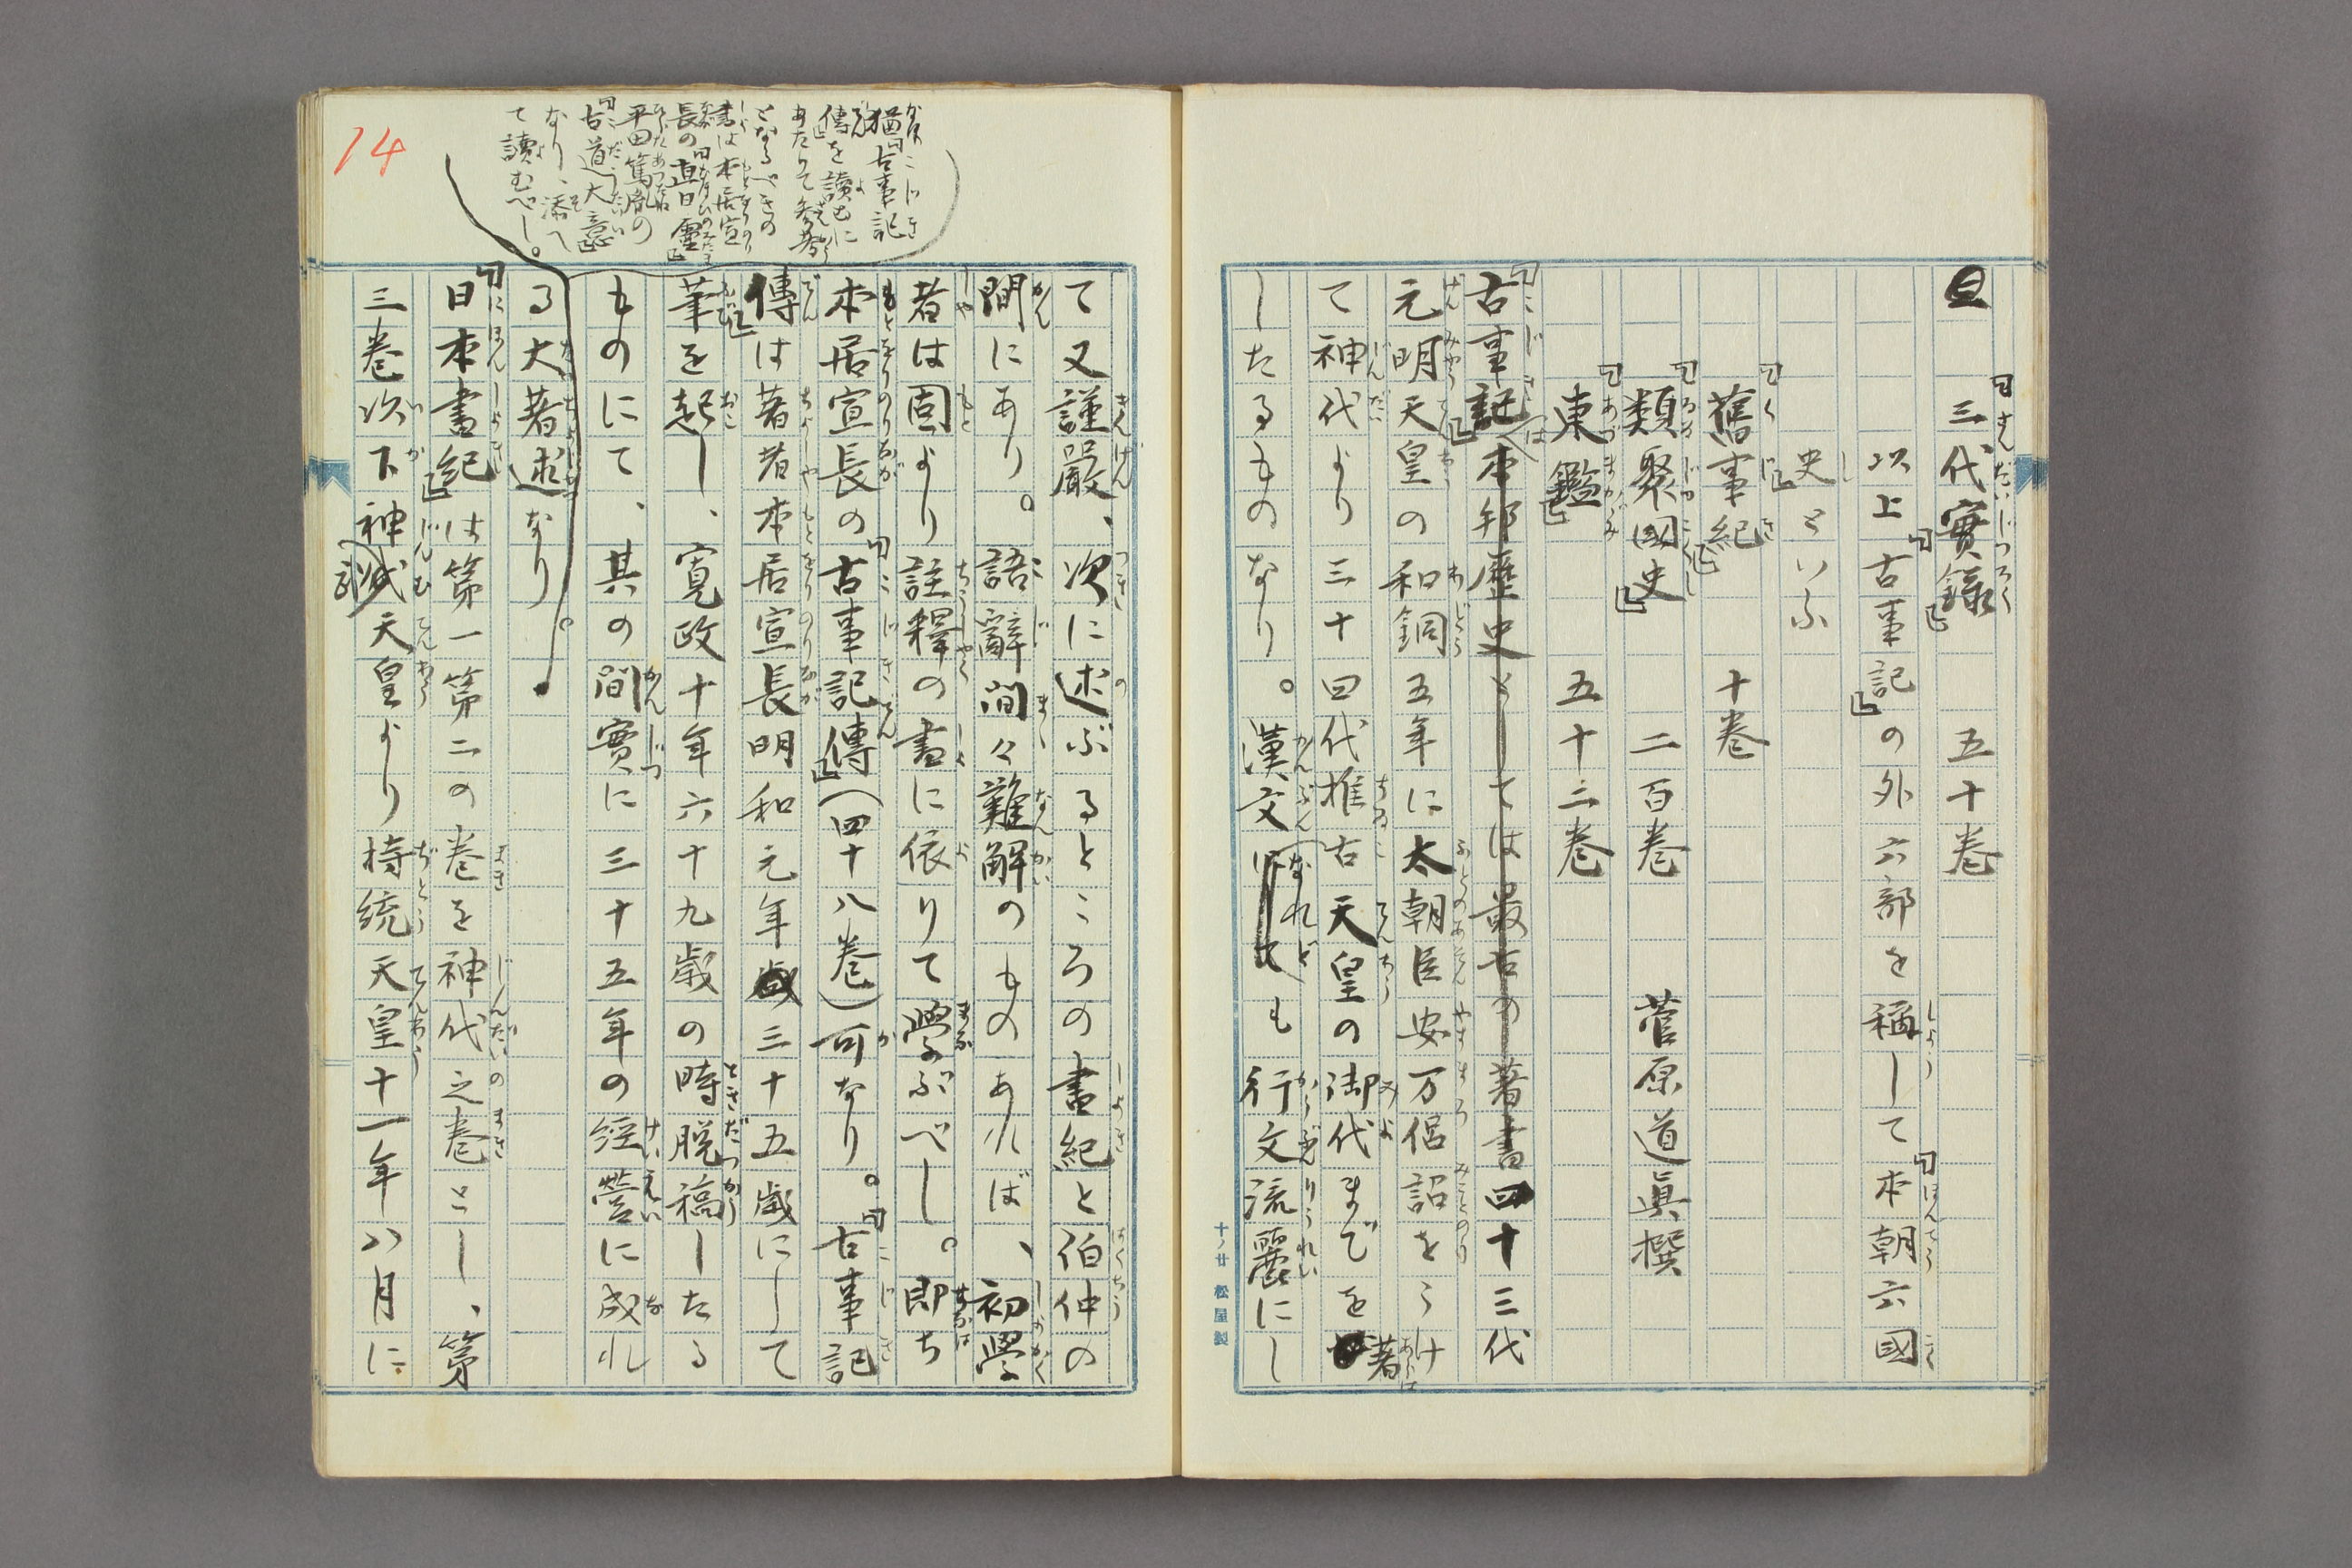 『三代實錄』　五十巻
以上『古事記』の外六部を稱して『本朝六國
史』といふ
『舊事紀』　十巻
『類聚國史』　二百巻　菅原道眞撰
『東鑑』　五十二巻
『古事記』は本邦歴史としては最古の著書四十三代
元明天皇の和銅五年に太朝臣安万侶詔をうけ
て神代より三十四代推古天皇の御代までを著
したるものなり。漢文なれども行文流麗にし
十ノ廿 松屋製
て又謹嚴、次に述ぶるところの書紀と伯仲の
間にあり。語辭間々難解のものあれば、初學
者は固より註釋の書に依りて學ぶべし。即ち
本居宣長の『古事記傳』(四十八巻)可なり。『古事記
傳』は著者本居宣長明和元年三十五歳にして
筆を起し、寛政十年六十九歳の時脱稿したる
ものにて、其の間實に三十五年の經營に成れ
る大著述なり。
猶『古事記
傳』を讀むに
あたりて参考
となるべきの
書は本居宣
長の『直日靈』
平田篤胤の
『古道大意』
なり、添へ
て讀むべし。
『日本書紀』は第一第二の巻を神代之巻とし、第
三巻以下神武天皇より持統天皇十一年八月に
14